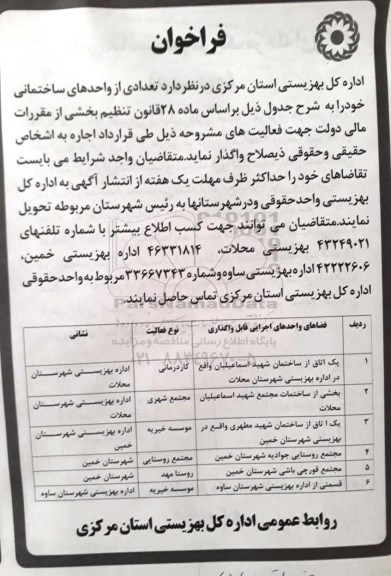 فراخوان
اداره کل بهزیستی استان مرکزی درنظر دارد تعدادی از واحدهای ساختمانی
خودرا به شرح جدول ذیل براساس ماده ۲۸قانون تنظیم بخشی از مقررات
مالی دولت جهت فعالیت های مشروحه ذیل طی قرارداد اجاره به اشخاص
حقیقی وحقوقی ذیصلاح واگذار نماید.متقاضیان واجد شرایط می بایست
تقاضاهای خود را حداکثر ظرف مهلت یک هفته از انتشار آگهی به اداره کل
بهزیستی واحدحقوقی ودرشهرستانها به رئیس شهرستان مربوطه تحویل
نمایند.متقاضیان می توانند جهت کسب اطلاع بیشتر با شماره تلفنهای
۴۳۲۴۹۰۲۱ بهزیستی محلات، ۴۶۳۳۱۸۱۴ اداره بهزیستی خمین،
۴۲۲۲۲۶۰۶ اداره بهزیستی ساوه وشماره ۳۳۶۶۷۳۴۳ مربوط به واحدحقوقی
اداره کل بهزیستی استان مرکزی تماس حاصل نمایند.
ParsNamadData
پایگاه اطلاع رسانی مناقصه و مزایده
ردیف فضاهای واحدهای اجرایی قابل واگذاری نوع فعالیت نشانی
۱ یک اتاق از ساختمان شهید اسماعیلیان واقع در اداره بهزیستی شهرستان محلات کاردرمانی اداره بهزیستی شهرستان محلات
۲ بخشی از ساختمان مجتمع شهید اسماعیلیان محلات مجتمع شهری اداره بهزیستی شهرستان محلات
۳ یک ا تاق از ساختمان شهید مطهری واقع در بهزیستی شهرستان خمین موسسه خیریه اداره بهزیستی شهرستان خمین
۴ مجتمع روستایی جوادیه شهرستان خمین مجتمع روستایی شهرستان خمین
۵ مجتمع قورچی باشی شهرستان خمین روستا مهد شهرستان خمین
۶ قسمتی از اداره بهزیستی شهرستان ساوه موسسه خیریه اداره بهزیستی شهرستان ساوه
روابط عمومی اداره کل بهزیستی استان مرکزی